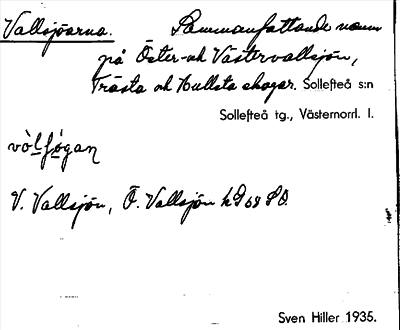 Vallsjöarna. Sammanfattande namn
på Öster- och Västervallsjön,
Trästa och Hullsta skogar. Sollefteå s:n
Sollefteå tg., Västernorrl. l.
V. Vallsjön, Ö. Vallsjön
Sven Hiller 1935.